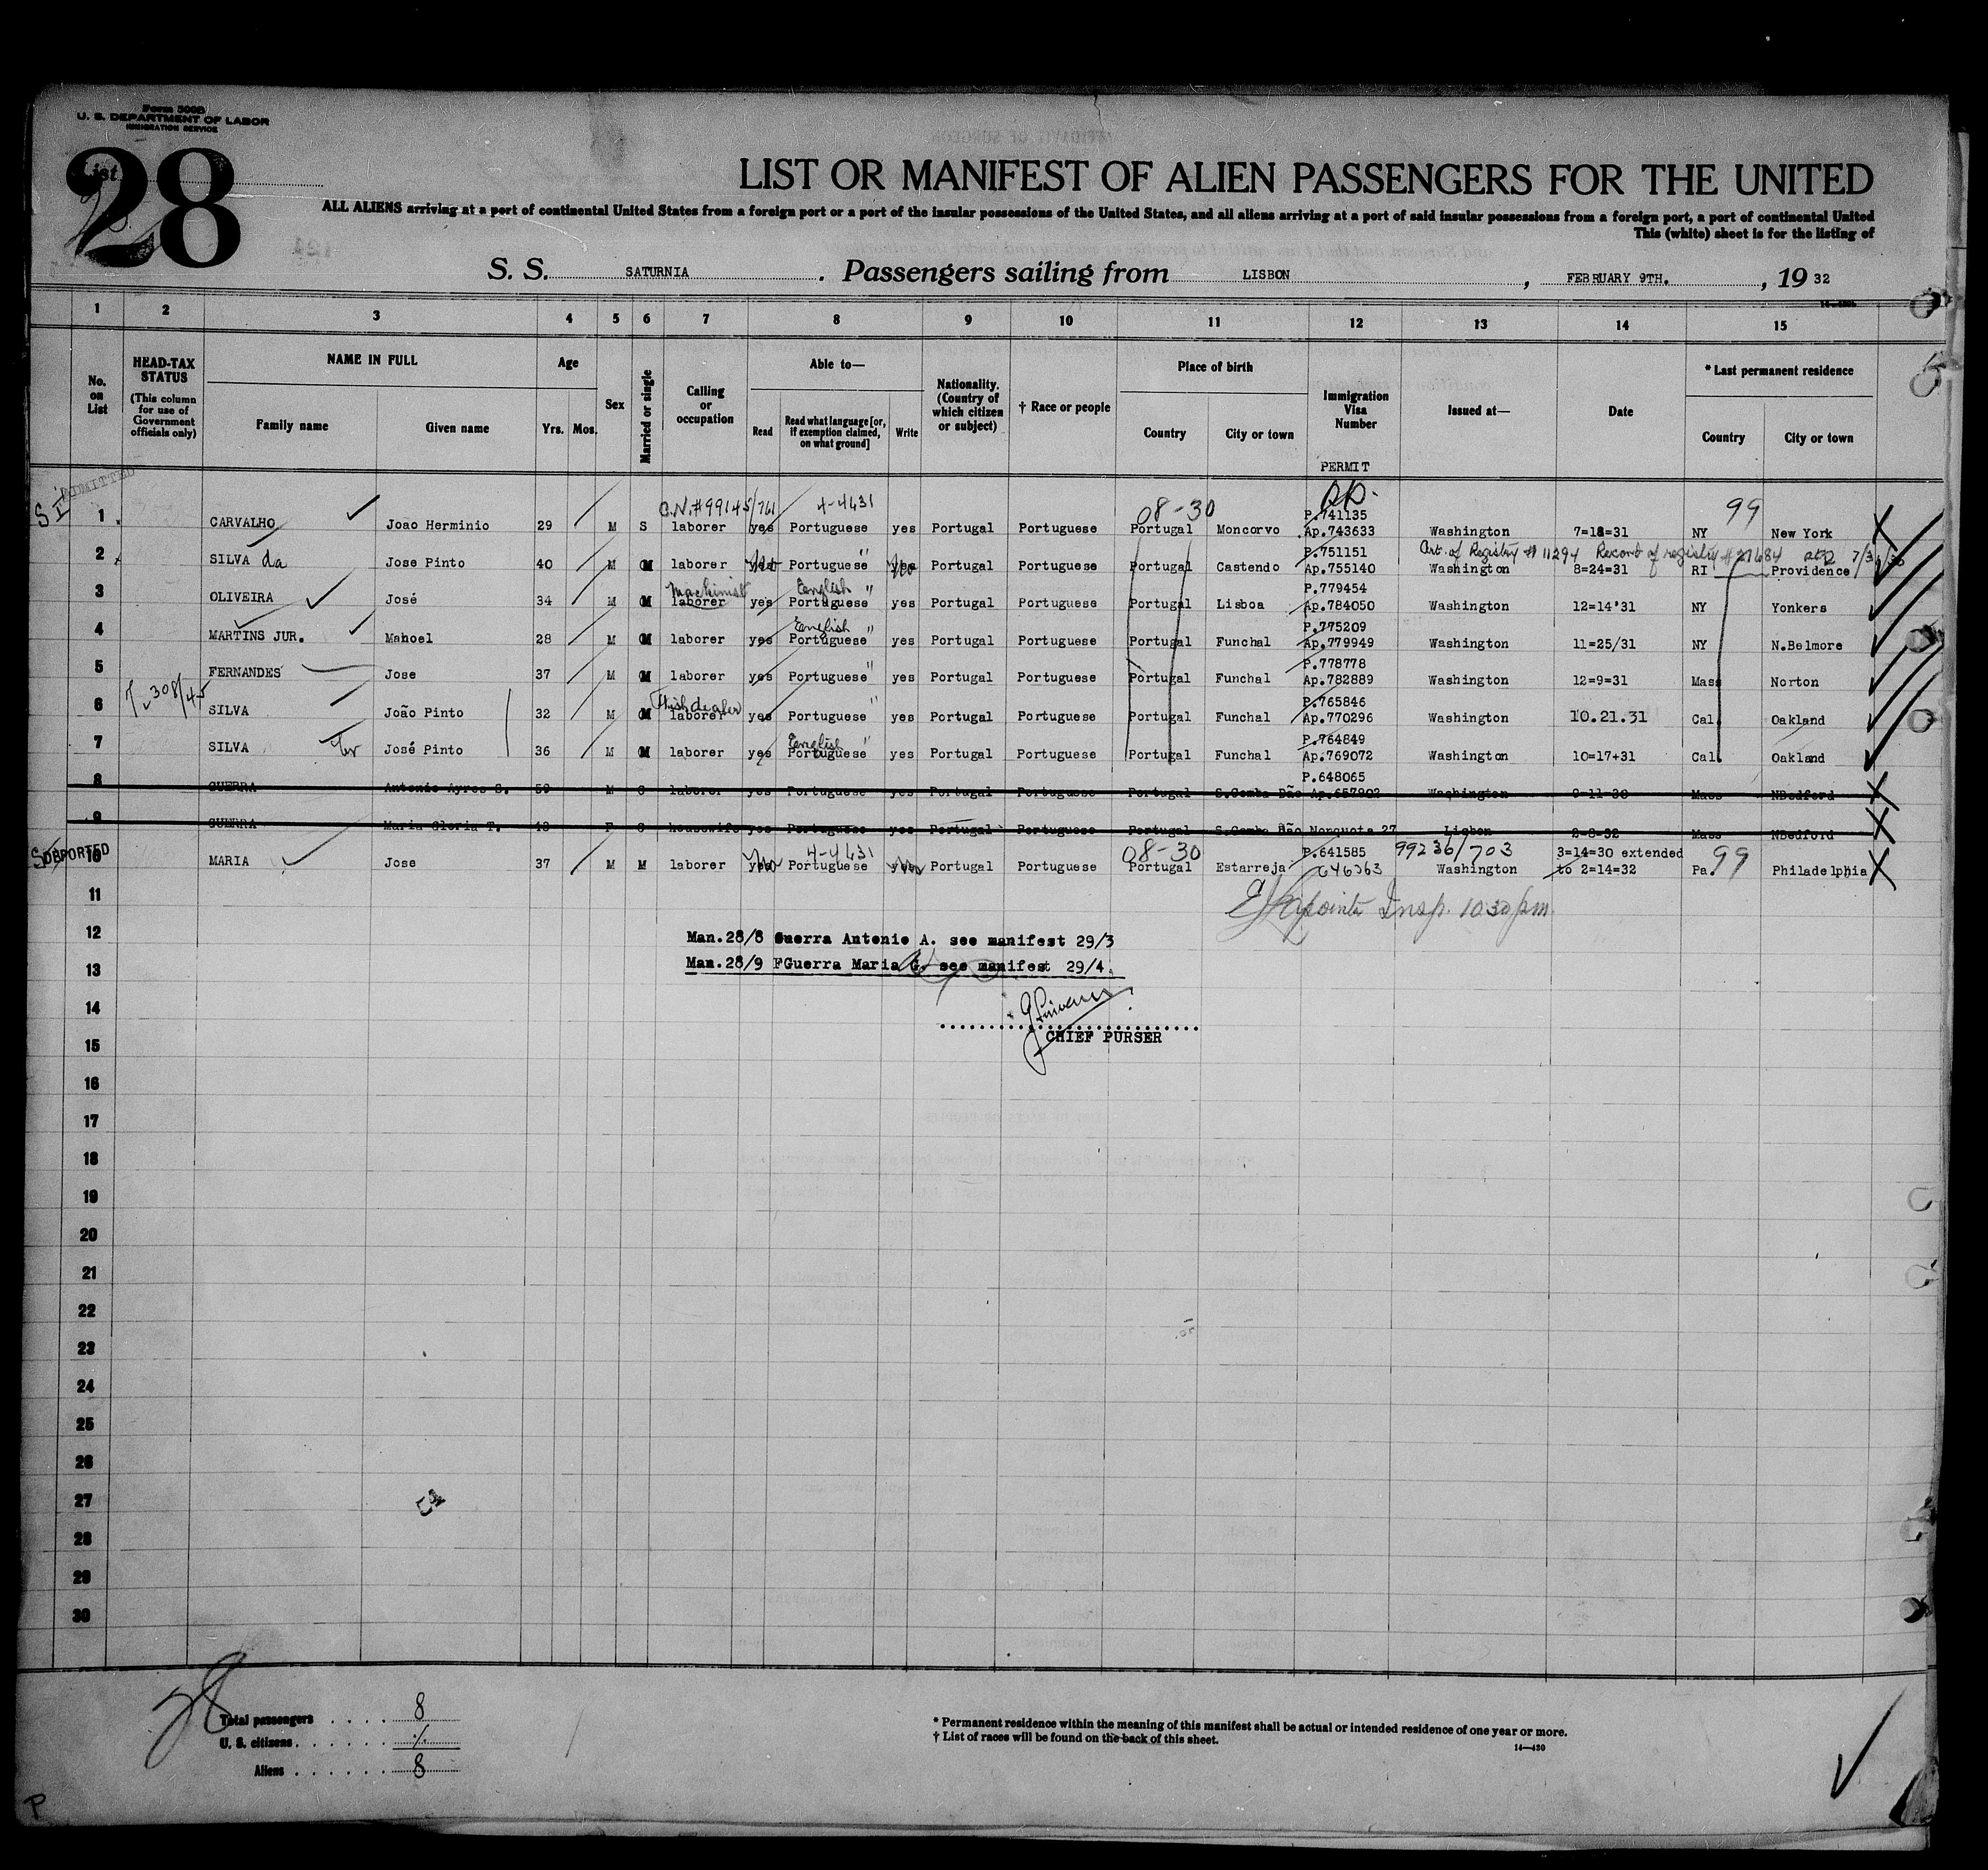 Form 500B
U. S. DEPARTMENT OF LABOR
IMMIGRATION SERVICE
List
28
LIST OR MANIFEST OF ALIEN PASSENGERS FOR THE UNITED
ALL ALIENS arriving at a port of continental United States from a foreign port or a port of the insular possessions of the United States, and all aliens arriving at a port of said insular possessions from a foreign port, a port of continental United
This (white) sheet is for the listing of
S. S. SATURNIA . Passengers sailing from LISBON , FEBRUARY 9TH. , 19 32
1 2 3 4 5 6 7 8 9 10 11 12 13 14 15
No. on List
HEAD-TAX STATUS (This column for use of Government officials only)
NAME IN FULL Family name Given name
Age Yrs. Mos.
Sex
Married or single
Calling or occupation
Able to— Read Read what language [or, if exemption claimed, on what ground] Write
Nationality. (Country of which citizen or subject)
† Race or people
Place of birth Country City or town
Immigration Visa Number
PERMIT
Issued at—
Date
* Last permanent residence Country City or town
SI ADMITTED
C.N.#99145/761 4-4631 08-30 99
P.741135
1 CARVALHO Joao Herminio 29 M S laborer yes Portuguese yes Portugal Portuguese Portugal Moncorvo Ap.743633 Washington 7=18=31 NY New York
P.751151 Cert. of Registry # 11294 Record of registry # 27684
2 SILVA da Jose Pinto 40 M M laborer No Portuguese " No Portugal Portuguese Portugal Castendo Ap.755140 Washington 8=24=31 RI Providence
machinist English P.779454
3 OLIVEIRA José 34 M M laborer yes Portuguese " yes Portugal Portuguese Portugal Lisboa Ap.784050 Washington 12=14'31 NY Yonkers
English P.775209
4 MARTINS JUR. Manoel 28 M M laborer yes Portuguese " yes Portugal Portuguese Portugal Funchal Ap.779949 Washington 11=25/31 NY N.Belmore
P.778778
5 FERNANDES Jose 37 M M laborer yes Portuguese " yes Portugal Portuguese Portugal Funchal Ap.782889 Washington 12=9=31 Mass Norton
308/45 Fish dealer P.765846
6 SILVA João Pinto 32 M M laborer yes Portuguese " yes Portugal Portuguese Portugal Funchal Ap.770296 Washington 10.21.31 Cal. Oakland
English P.764849
7 SILVA José Pinto 36 M M laborer yes Portuguese " yes Portugal Portuguese Portugal Funchal Ap.769072 Washington 10=17+31 Cal. Oakland
P.648065
8 GUERRA Antonio Ayres S. 59 M S laborer yes Portuguese yes Portugal Portuguese Portugal S.Comba Dão Ap.657902 Washington 9-11-30 Mass NBedford
9 GUERRA Maria Gloria T. 48 F S housewife yes Portuguese yes Portugal Portuguese Portugal S.Comba Dão Nonquota 27 Lisbon 2-8-32 Mass NBedford
DEPORTED 4-4631 08-30 P.641585 99236/703 3=14=30 extended 99
10 MARIA Jose 37 M M laborer No Portuguese No Portugal Portuguese Portugal Estarreja 646363 Washington to 2=14=32 Pa. Philadelphia
11 Insp. 10:30 pm.
12 Man.28/8 Guerra Antonio A. see manifest 29/3
13 Man.28/9 FGuerra Maria G. see manifest 29/4.
14
CHIEF PURSER
15
16
17
18
19
20
21
22
23
24
25
26
27
28
29
30
28
Total passengers . . . . 8
U. S. citizens . . . . . .
Aliens . . . . . . 8
* Permanent residence within the meaning of this manifest shall be actual or intended residence of one year or more.
† List of races will be found on the back of this sheet.
14—430
P